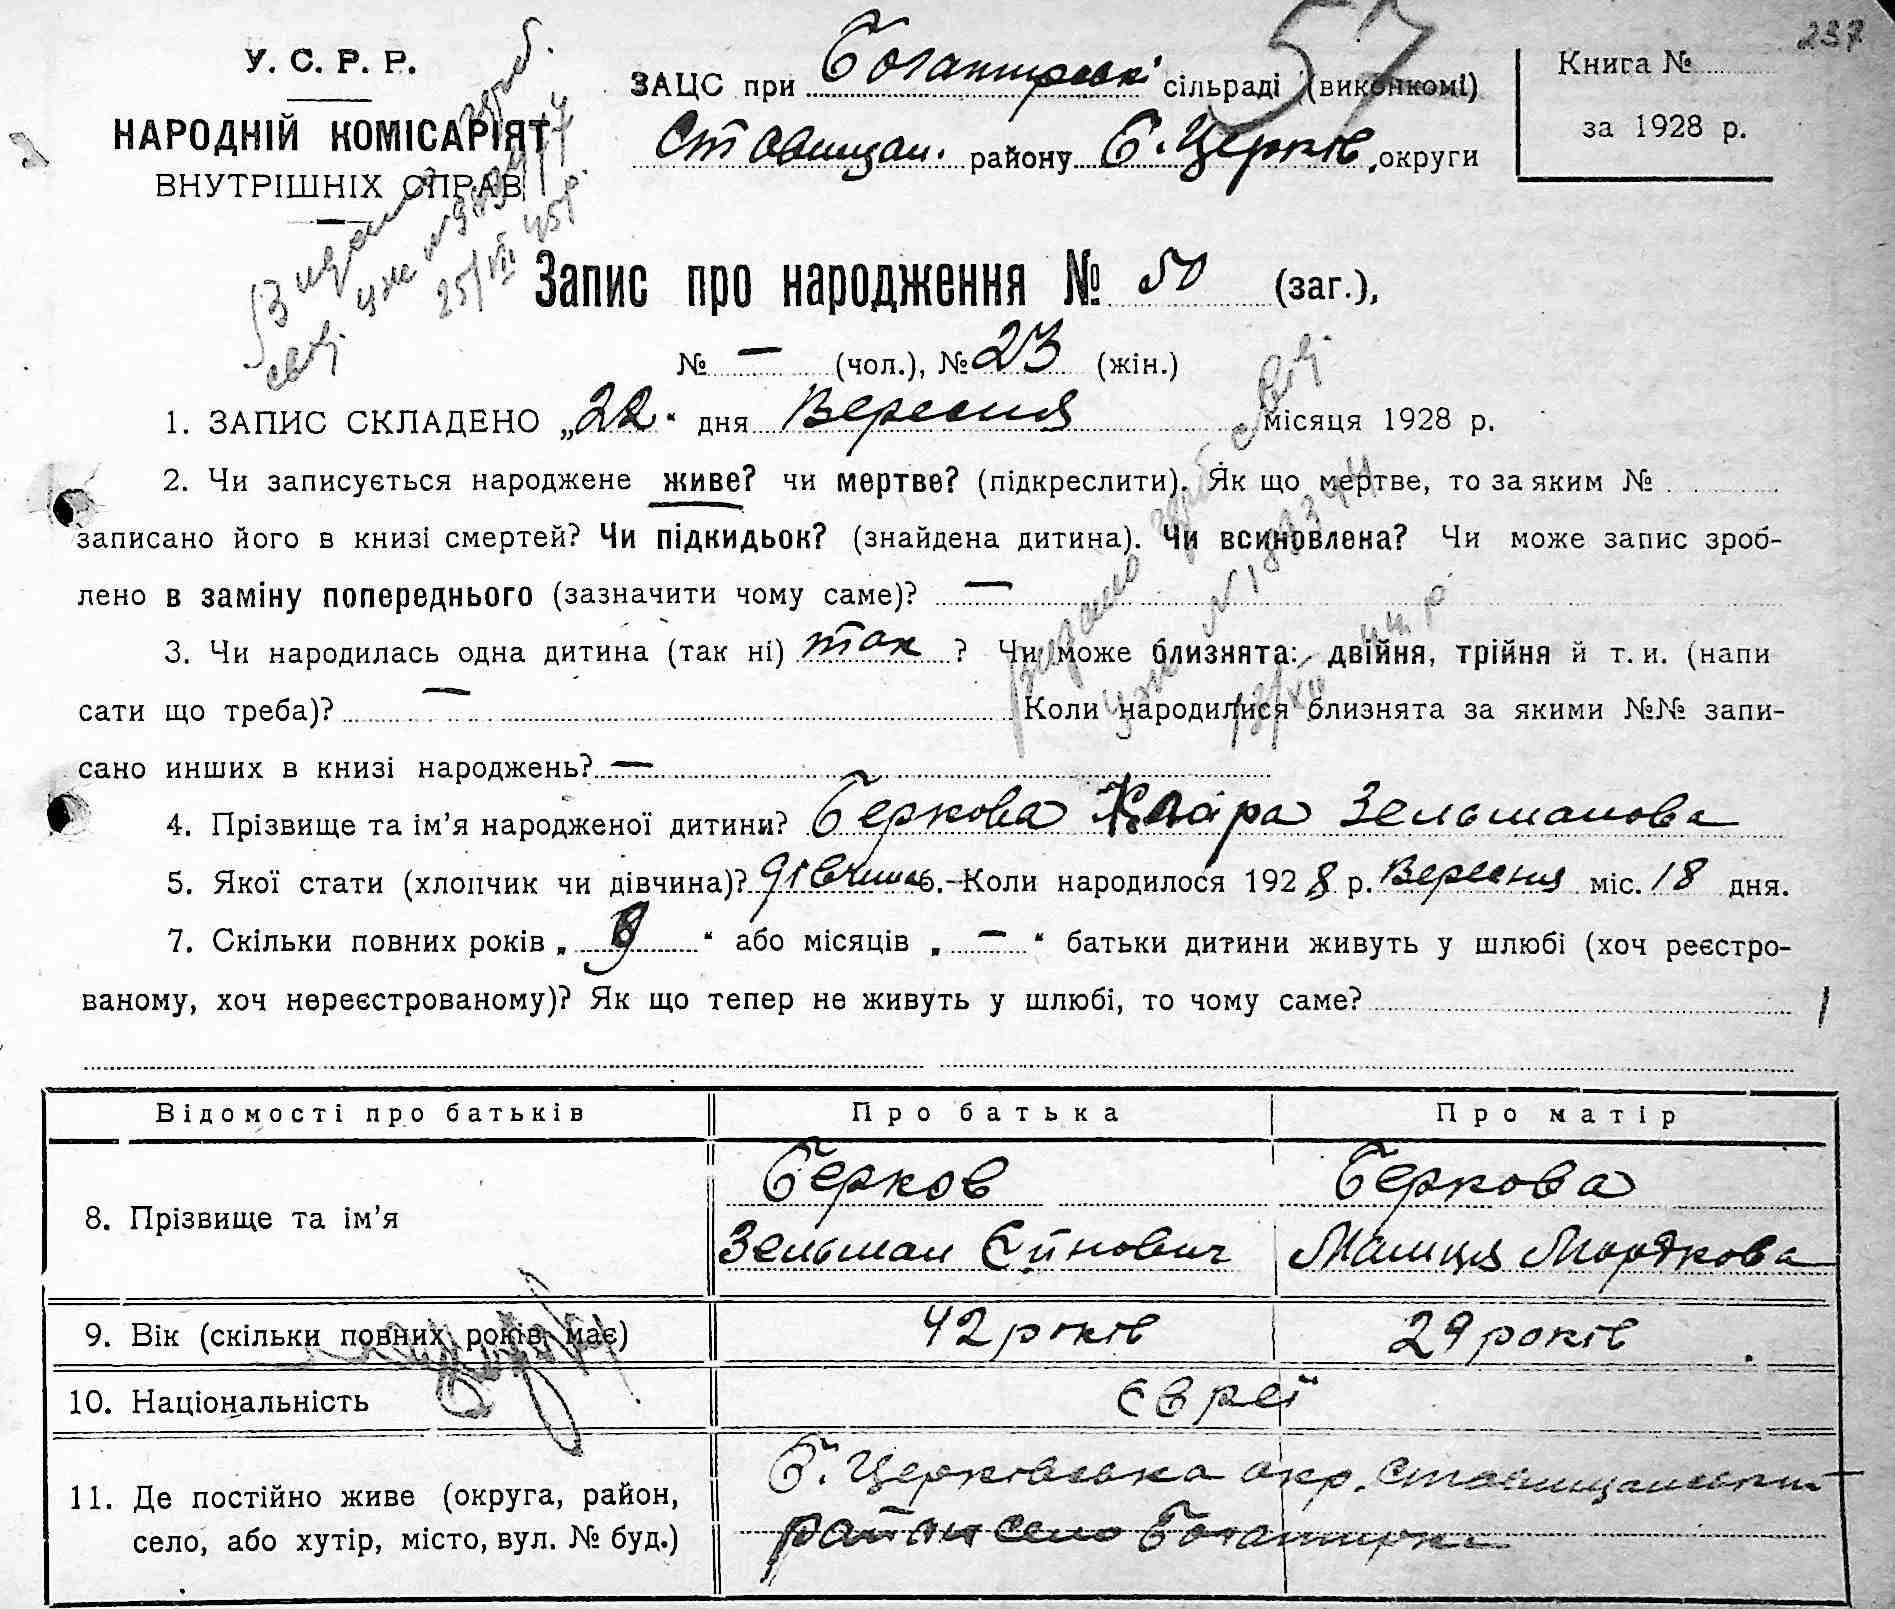 237
57
У. С. Р. Р.
НАРОДНІЙ КОМІСАРІЯТ
ВНУТРІШНІХ СПРАВ
ЗАЦС при Богатирські сільраді (виконкомі)
Ставищан. району Б. Церків. округи
Книга №
за 1928 р.
Запис про народження № 50 (заг.),
№ — (чол.), № 23 (жін.)
1. ЗАПИС СКЛАДЕНО „22“ дня Вересня місяця 1928 р.
2. Чи записується народжене живе? чи мертве? (підкреслити). Як що мертве, то за яким №
записано його в книзі смертей? Чи підкидьок? (знайдена дитина). Чи всиновлена? Чи може запис зроб-
лено в заміну попереднього (зазначити чому саме)? —
3. Чи народилась одна дитина (так ні) так ? Чи може близнята: двійня, трійня й т. и. (напи
сати що треба)? — Коли народилися близнята за якими №№ запи-
сано инших в книзі народжень? —
4. Прізвище та ім’я народженої дитини? Беркова Клара Зельманова
5. Якої стати (хлопчик чи дівчина)? дівчина 6.–Коли народилося 1928 р. Вересня міс. 18 дня.
7. Скільки повних років „ 9 “ або місяців „ — “ батьки дитини живуть у шлюбі (хоч реєстро-
ваному, хоч нереєстрованому)? Як що тепер не живуть у шлюбі, то чому саме?
Відомості про батьків Про батька Про матір
8. Прізвище та ім’я
Берков Беркова
Зельман Єйнович Малиця Мордкова
9. Вік (скільки повних років має) 42 років 29 років
10. Національність євреї
11. Де постійно живе (округа, район,
село, або хутір, місто, вул. № буд.)
Б. Церківська окр. Ставищанський
район село Богатирка